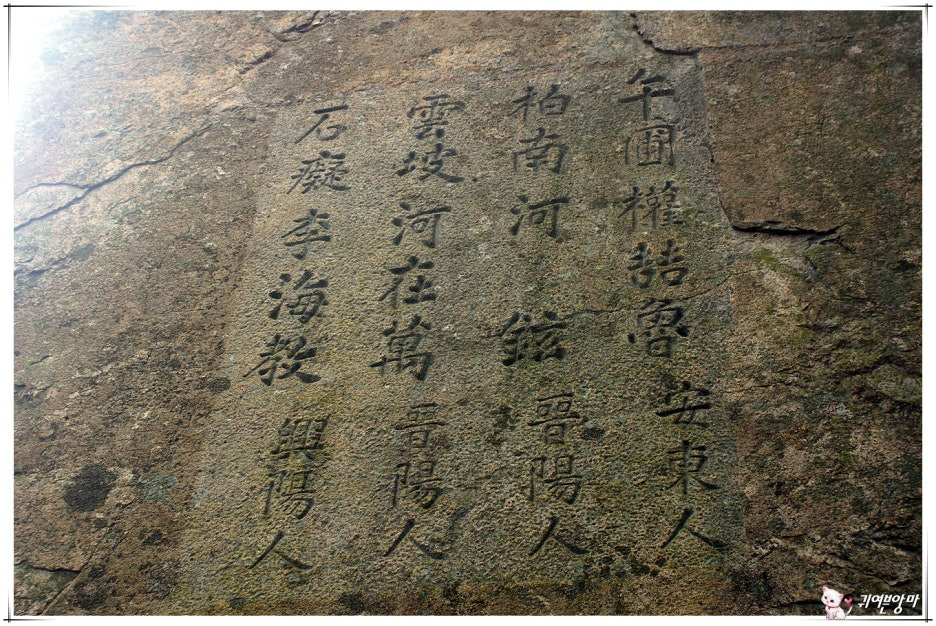 午圃權喆魯 安東人
柏南河 鉉 晋陽人
雲坡河在萬 晋陽人
石癡李海教 興陽人
귀여븐앙마